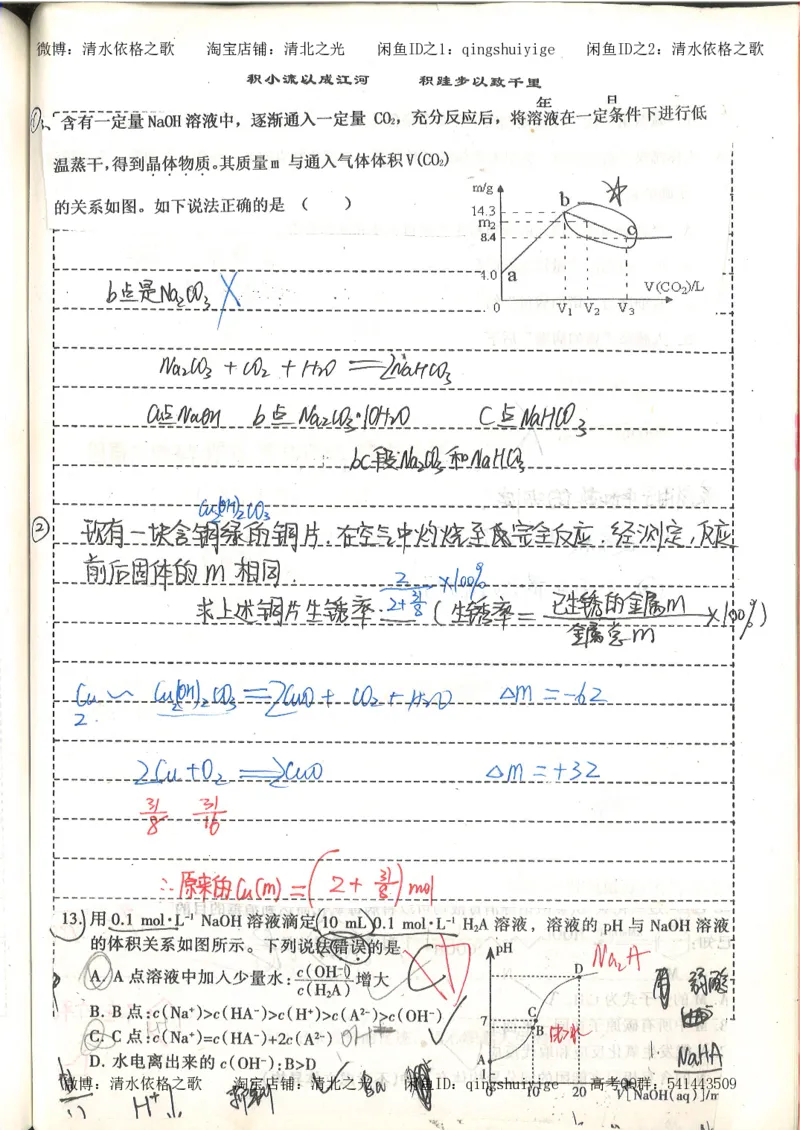 微博：清水依格之歌 淘宝店铺：清北之光 闲鱼ID之1：qingshuiyige 闲鱼ID之2：清水依格之歌
积小流以成江河 积跬步以致千里
年 日
①、含有一定量NaOH溶液中，逐渐通入一定量 CO₂，充分反应后，将溶液在一定条件下进行低
温蒸干，得到晶体物质。其质量m 与通入气体体积V(CO₂)
的关系如图。如下说法正确的是 （ ）
m/g
14.3
m₂
8.4
4.0
a
b
c
0 V₁ V₂ V₃
V(CO₂)/L
b点是Na₂CO₃ ×
Na₂CO₃ + CO₂ + H₂O = 2NaHCO₃
a点NaOH b点 Na₂CO₃·10H₂O C点NaHCO₃
bc段Na₂CO₃和NaHCO₃
Cu₂(OH)₂CO₃
② 现有一块含铜绿的铜片，在空气中灼烧至完全反应，经测定，反应
前后固体的m相同．
求上述铜片生锈率：2/(2+31/8) ×100% (生锈率= 已生锈的金属m/金属总m ×100%)
Cu ～ Cu₂(OH)₂CO₃ = 2CuO + CO₂ + H₂O △m = -62
2
2Cu + O₂ = 2CuO △m = +32
31/8 31/16
∴原来的Cu(m) = (2 + 31/8) mol
13. 用 0.1 mol·L⁻¹ NaOH 溶液滴定 10 mL 0.1 mol·L⁻¹ H₂A 溶液，溶液的 pH 与 NaOH 溶液
的体积关系如图所示。下列说法错误的是
A. A 点溶液中加入少量水：c(OH⁻)/c(H₂A) 增大
B. B 点：c(Na⁺)>c(HA⁻)>c(H⁺)>c(A²⁻)>c(OH⁻)
C. C 点：c(Na⁺)=c(HA⁻)+2c(A²⁻) OH⁻
D. 水电离出来的 c(OH⁻)：B>D
pH
7
1
A
B
C
D
0 10 20 V[NaOH(aq)]/m
Na₂A
弱酸
NaHA
H⁺
微博：清水依格之歌 淘宝店铺：清北之光 闲鱼ID：qingshuiyige 高考QQ群：541443509